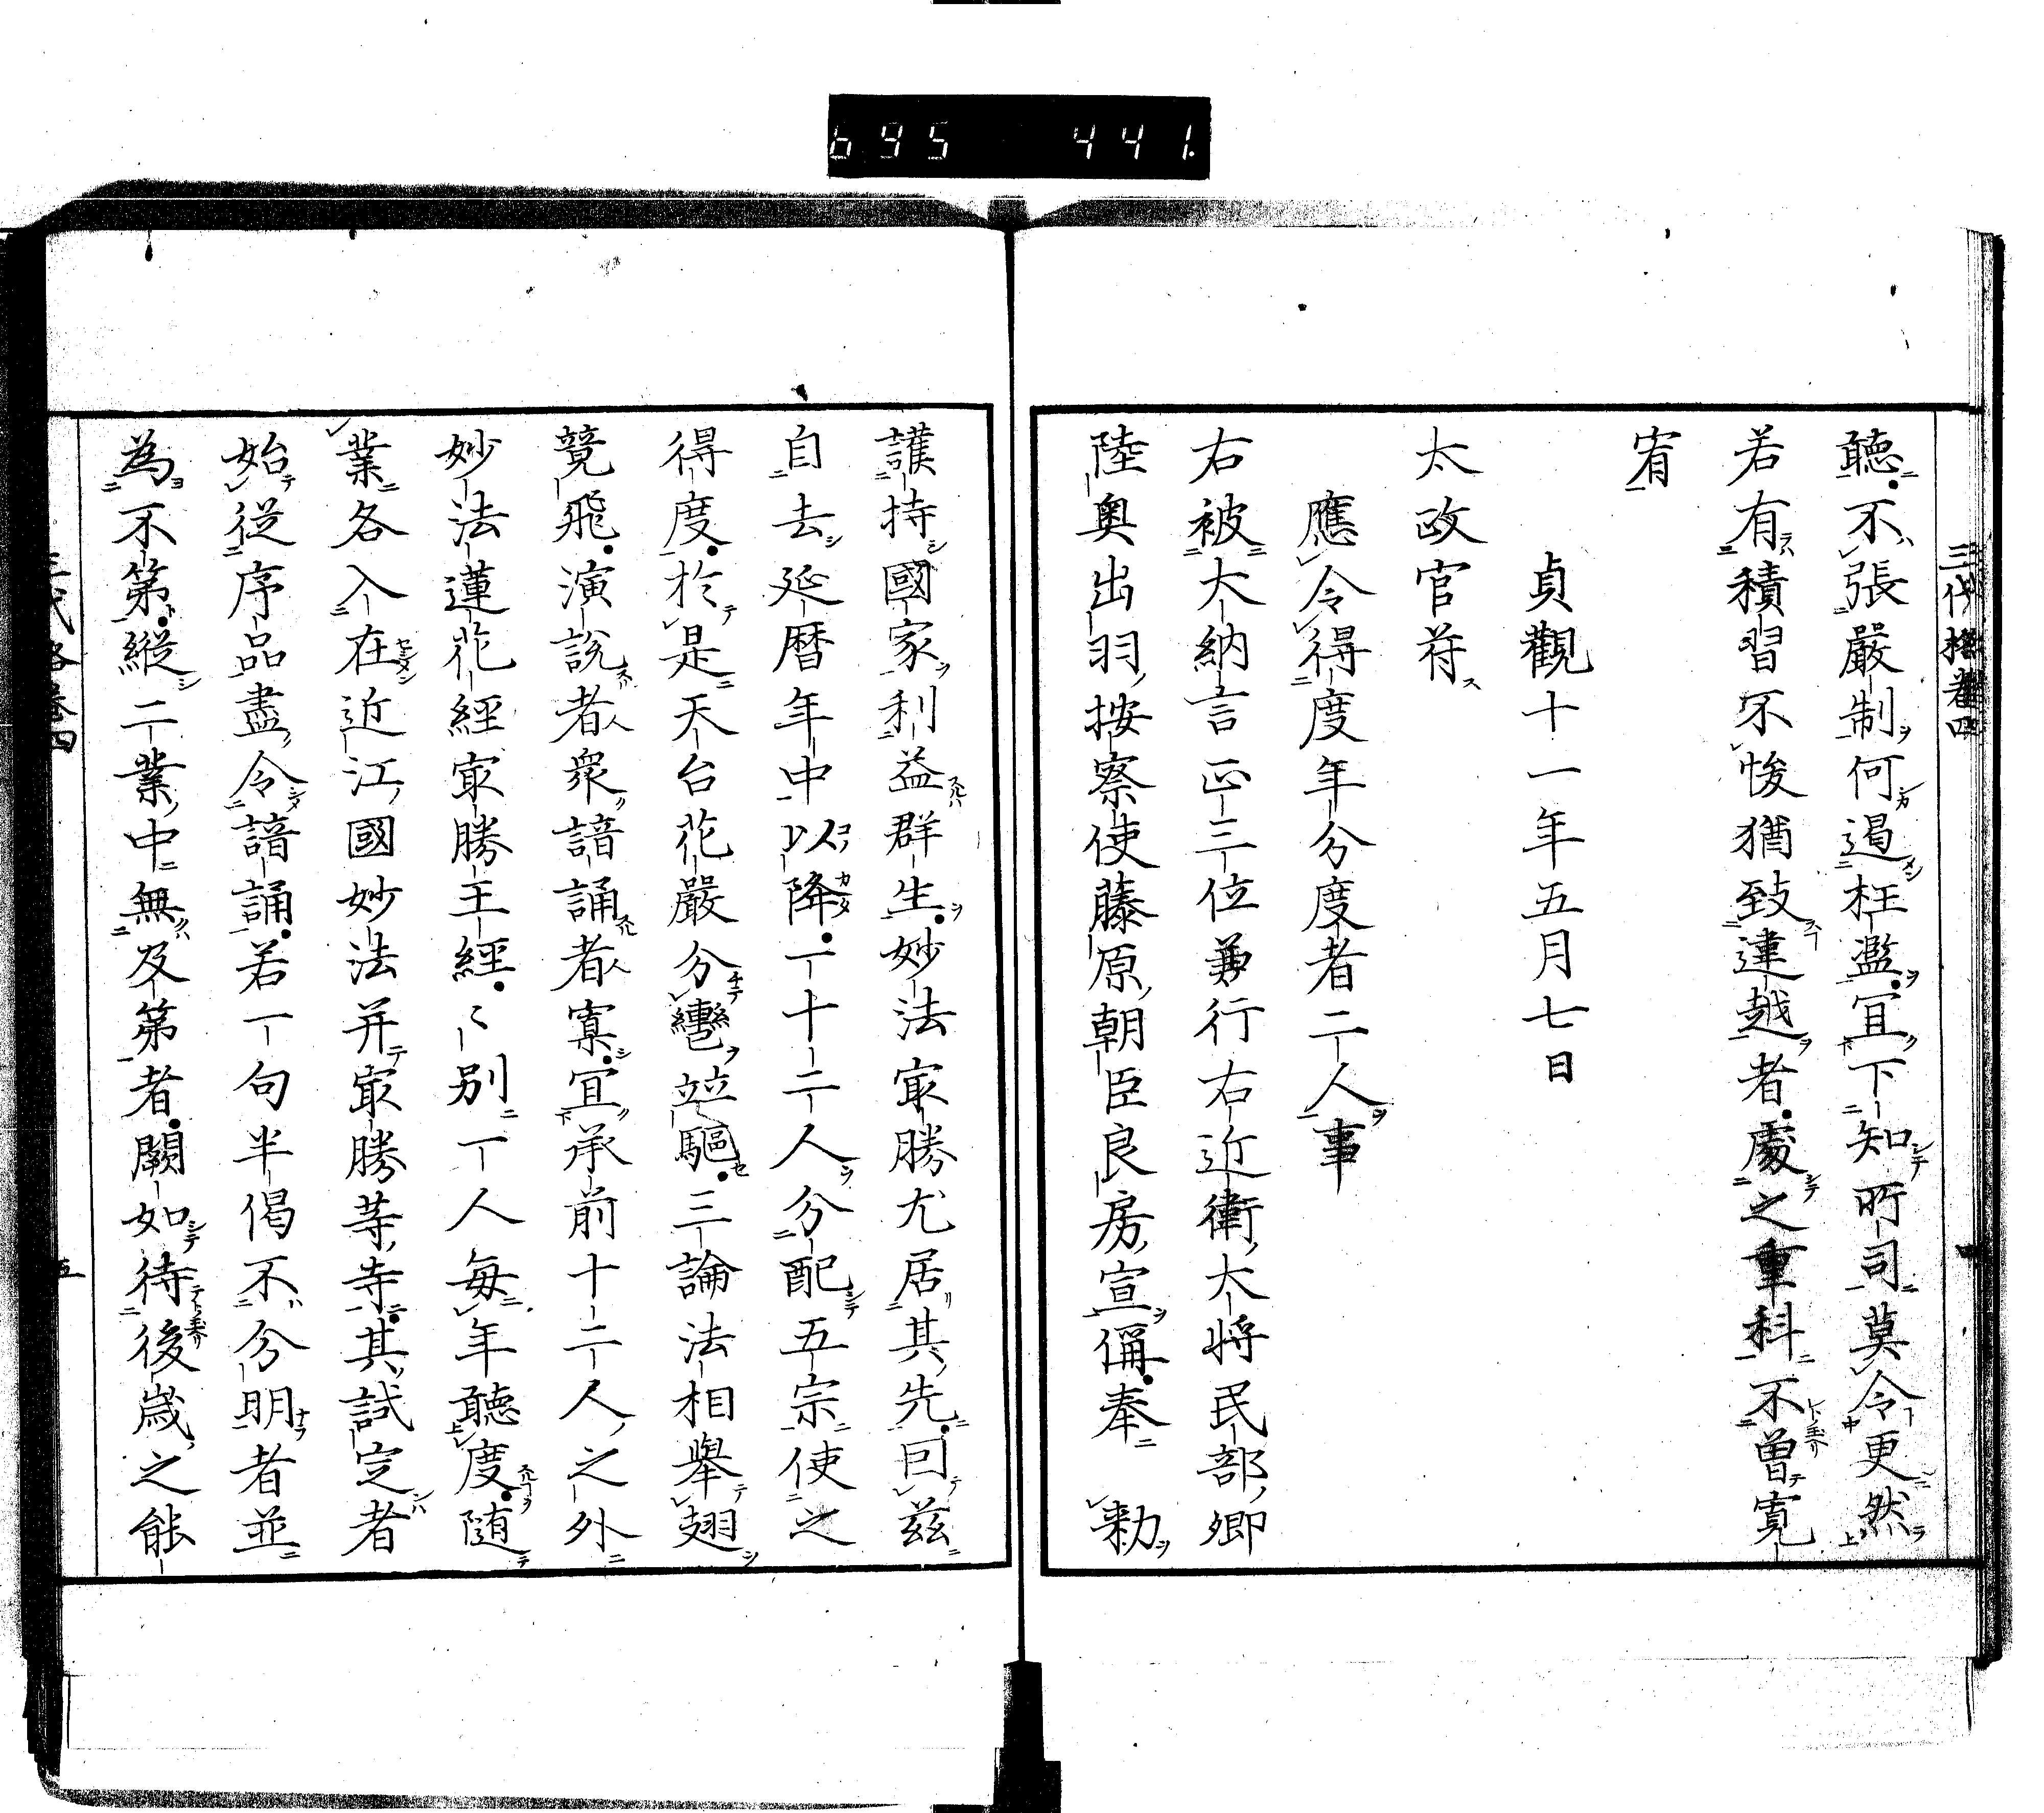 聽不張嚴制何遏枉濫冝下知所司莫令更然
若有積習不悛猶致違越者處之重科不曽寛
宥
貞觀十一年五月七日
太政官符
應令得度年分度者二人事
右被大納言正三位兼行右近衛大将民部卿
陸奥出羽按察使藤原朝臣良房宣偁奉　勅
護持國家利益群生妙法㝡勝尤居其先囙兹
自去延暦年中以降一十二人分配五宗使之
得度於是天台花嚴分轡竝驅三論法相舉翅
競飛演說者衆諳誦者寡冝承前十二人之外
妙法蓮花經㝡勝王經〻別一人毎年聽度随
業各入在近江國妙法并㝡勝等寺其試定者
始從序品盡令諳誦若一句半偈不分明者並
為不第縱二業中無及第者闕如待後歲之能
三代格卷四
五
695 441.